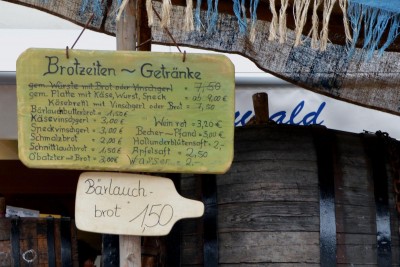 Brotzeiten ~ Getränke
gem. Würste mit Brot oder Vinschgerl = 7,50
gem. Platte mit Käse, Wurst, Speck = ab 9,00€
Käsebrettl mit Vinschgerl oder Brot = 7,50
Bärlauchbutterbrot = 1,50€
Käsevinschgerl = 3,00€
Speckvinschgerl = 3,00€
Schmalzbrot = 2,00
Schnittlauchbrot = 1,50€
Obatzter ~ Brot = 3,00€
Wein rot = 3,20€
Becher ~ Pfand = 3,00€
Hollunderblütensaft = 2,-
Apfelsaft = 2,50
Wasser = 2,-
Bärlauch-
brot 1,50
wald